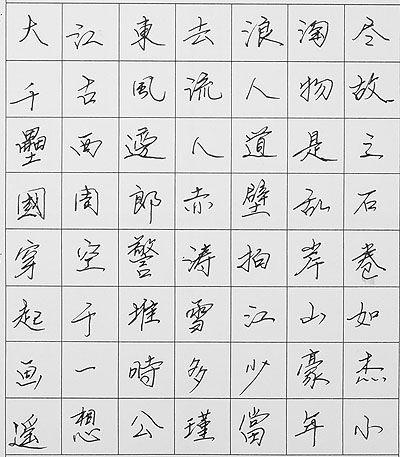 大江東去浪淘尽
千古風流人物故
壘西邊人道是三
國周郎赤壁乱石
穿空警涛拍岸卷
起千堆雪江山如
画一時多少豪杰
遥想公瑾當年小